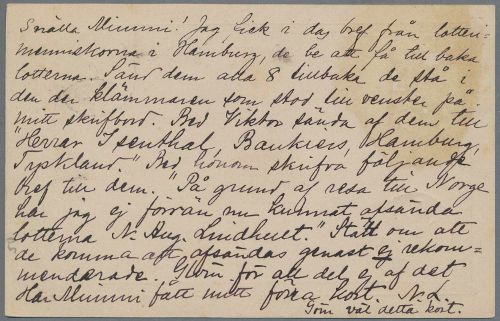 Snälla Mimmi! Jag fick i dag bref från lotteri-
menniskorna i Hamburg, de be att få till baka
lotterna. Sänd dem alla 8 tillbaka de stå i
den der klämmaren som stod till venster på
mitt skrifbord. Bed Viktor sända af dem till
"Herrar Isenthal, Bankiers, Hamburg,
Tyskland." Bed honom skrifva följande
bref till dem. "På grund af resa till Norge
har jag ej förrän nu kunnat afsända
lotterna N. Aug. Lindhult." Tillse om att
de komma att afsändas genast ej rekom-
menderade. Glöm för all del ej af det
Har Mimmi fått mitt förra kort. N. L.
Göm väl detta kort.